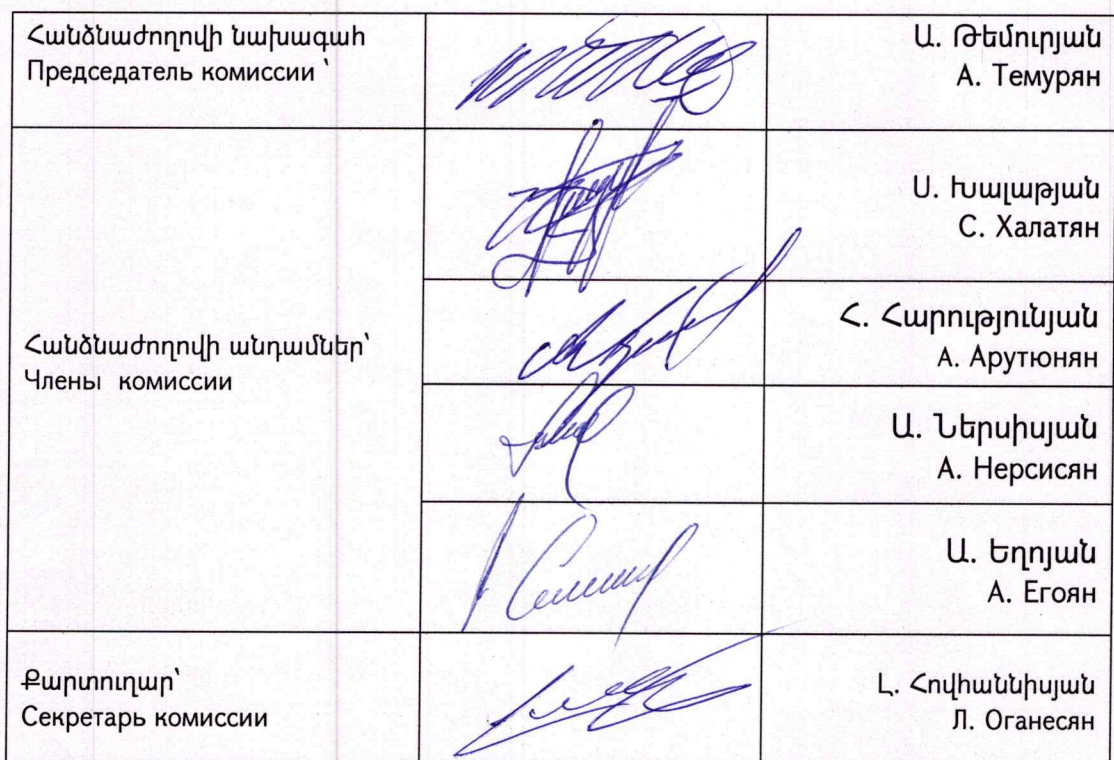 Հանձնաժողովի նախագահ
Председатель комиссии ՝
Ա. Թեմուրյան
А. Темурян
Ս. Խալաթյան
С. Халатян
Հանձնաժողովի անդամներ՝
Члены комиссии
Հ. Հարությունյան
А. Арутюнян
Ա. Ներսիսյան
А. Нерсисян
Ա. Եղոյան
А. Егоян
Քարտուղար՝
Секретарь комиссии
Լ. Հովհաննիսյան
Л. Оганесян